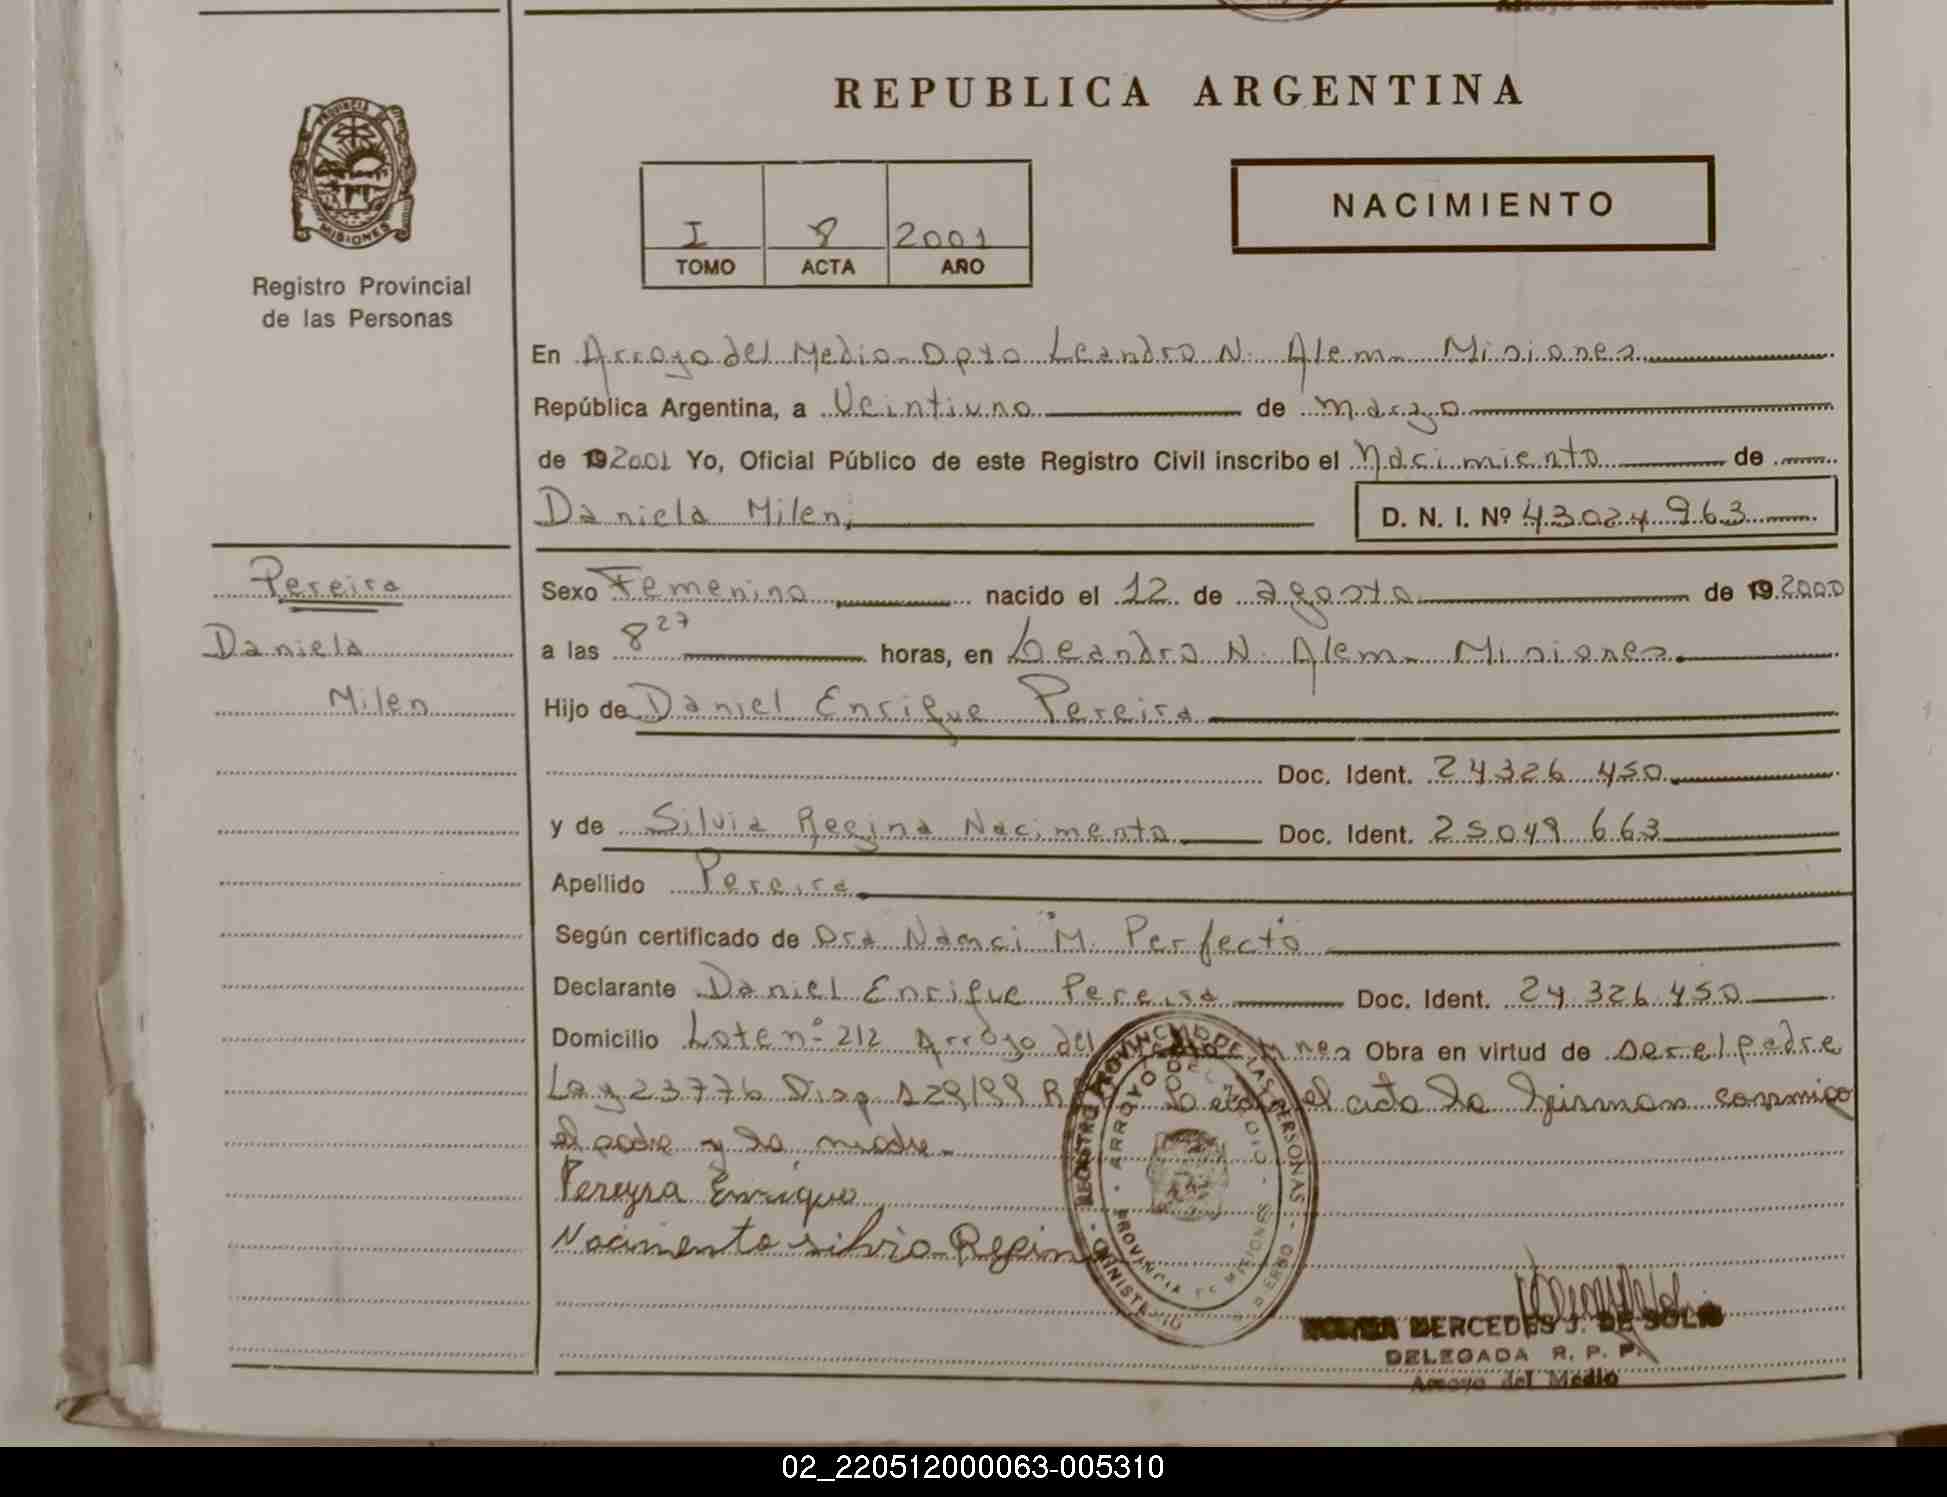 REPUBLICA ARGENTINA
PROVINCIA DE
MISIONES
Registro Provincial
de las Personas
I 8 2001
TOMO ACTA AÑO
NACIMIENTO
En Arroyo del Medio Dpto Leandro N. Alem Misiones
República Argentina, a Veintiuno de marzo
de 192001 Yo, Oficial Público de este Registro Civil inscribo el Nacimiento de
Daniela Milen
D. N. I. Nº 43024963
Pereira
Daniela
Milen
Sexo Femenino nacido el 12 de agosto de 19 2000
a las 8 27 horas, en Leandro N. Alem Misiones
Hijo de Daniel Enrique Pereira
Doc. Ident. 24326 450
y de Silvia Regina Nacimento Doc. Ident. 25049 663
Apellido Pereira
Según certificado de Dra Nanci "M. Perfecto
Declarante Daniel Enrique Pereira Doc. Ident. 24 326 450
Domicilio Lote nº 212 Arroyo del Obra en virtud de ser el padre
Ley 23776 Disp 129/99 el acta la firman conmigo
el padre y la madre.
Pereyra Enrique
Nacimento silvia Regin
REGISTRO PROVINCIAL DE LAS PERSONAS
ARROYO DEL MEDIO
PROVINCIA DE MISIONES
MERCEDES J. DE SOLIS
DELEGADA R. P. P.
Arroyo del Medio
02_220512000063-005310